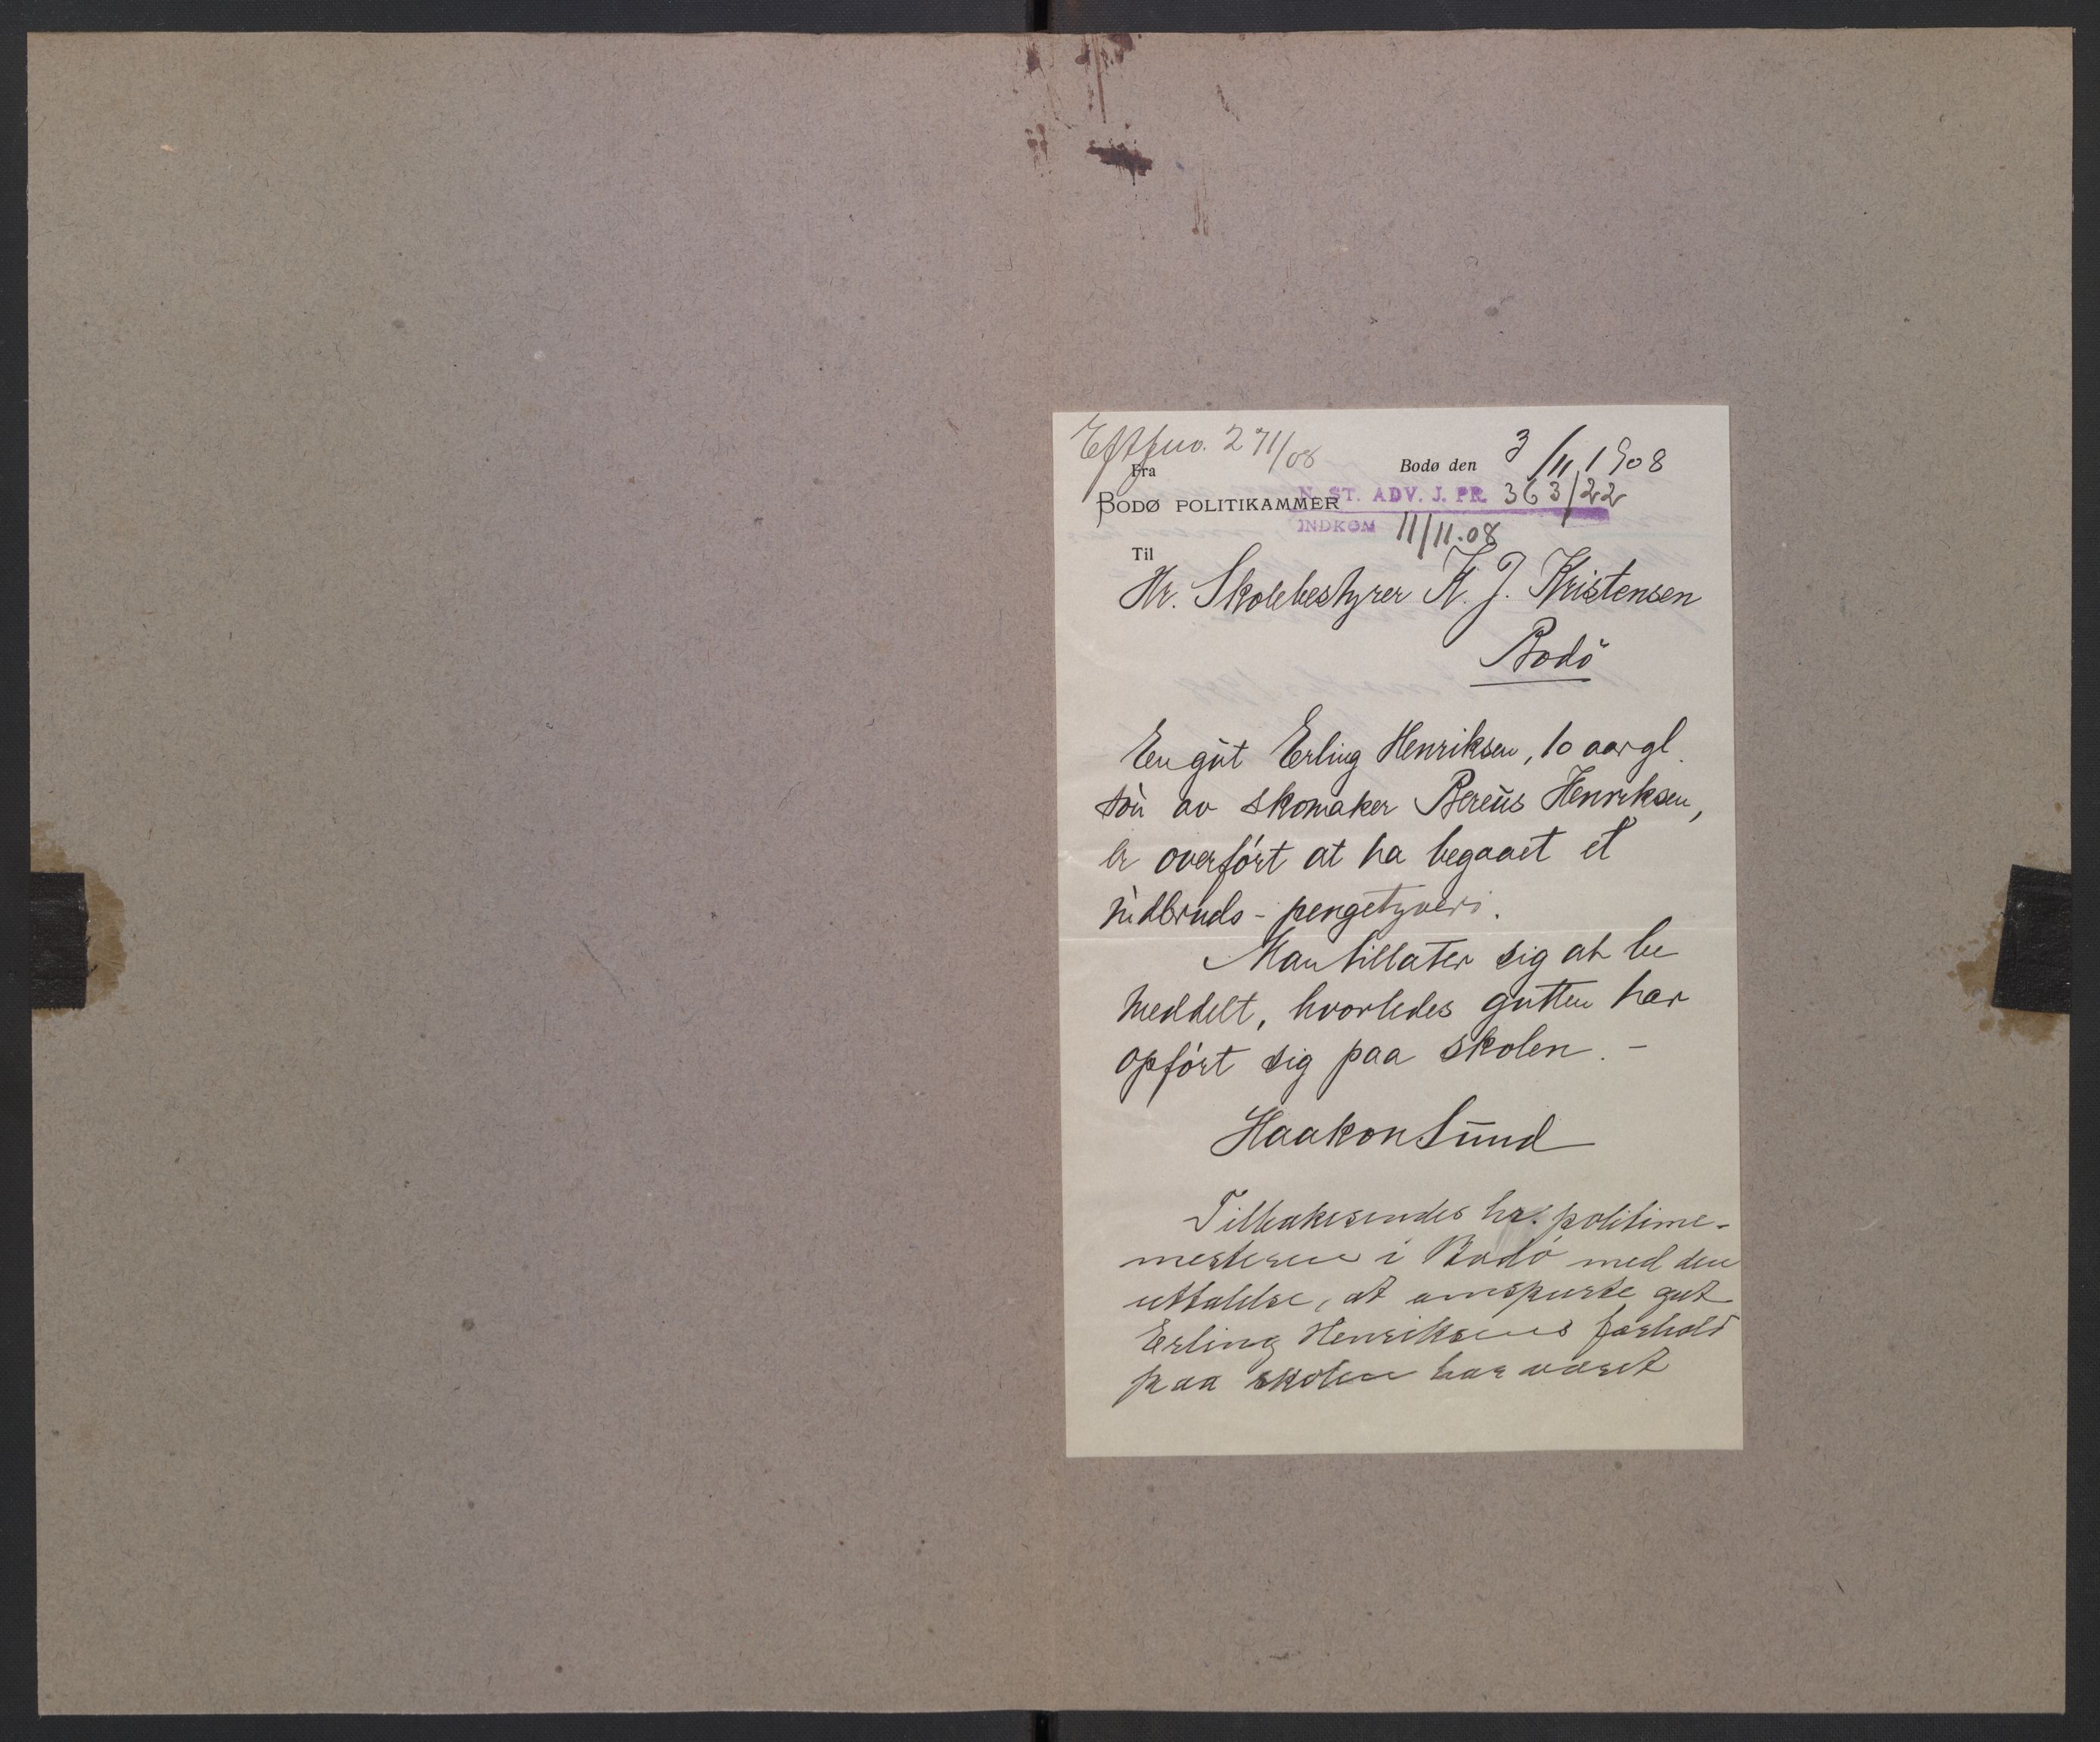 Eftfno. 271/08
Fra
Bodø den 3/11 1908
BODØ POLITIKAMMER
N. ST. ADV. J. PR. 363/22
INDKOM 11/11.08
Til
Hr. Skolebestyrer K. J. Kristensen
Bodö
En gut Erling Henriksen, 10 aar gl.
sön av skomaker Bereus Henriksen,
er overfört at ha begaaet et
indbruds-pengetyveri.
Man tillater sig at be
meddelt, hvorledes gutten har
opfört sig paa skolen. -
Haakon Sund
Tilbakesendes hr. politime-
mesteren i Bodö med den
uttalelse, at omspurte gut
Erling Henriksens forhold
paa skolen har været